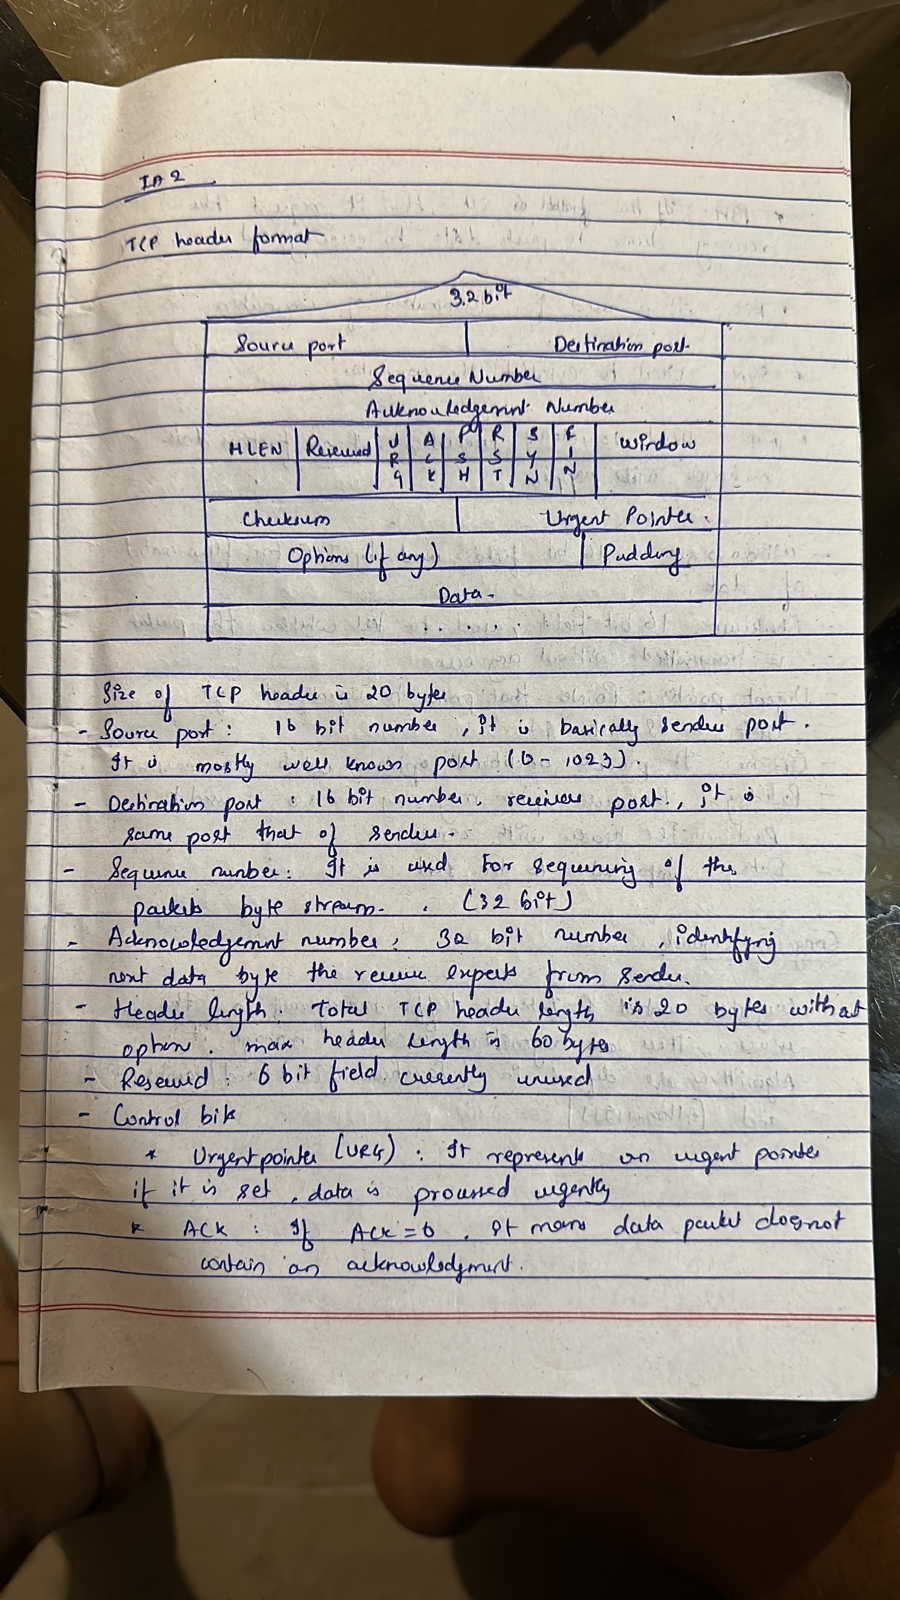 IA 2
TCP header format
32 bit
Source port Destination port
Sequence Number
Acknowledgement Number
HLEN Reserved URG ACK PSH RST SYN FIN Window
Checksum Urgent Pointer.
Options (if any) Padding
Data-
Size of TCP header is 20 bytes
- Source port: 16 bit number, it is basically sender port.
It is mostly well known port (0-1023).
- Destination port: 16 bit number, receiver port., it is
same port that of sender.
- Sequence number: It is used for sequencing of the
packets byte stream. (32 bit)
- Acknowledgement number: 32 bit number, identifying
next data byte the receiver expects from sender.
- Header length. Total TCP header length is 20 bytes without
option. max header length is 60 bytes
- Reserved: 6 bit field currently unused
- Control bits
* Urgent pointer (URG): It represents an urgent pointer
if it is set, data is processed urgently
* ACK: If ACK=0, it means data packet does not
contain an acknowledgment.